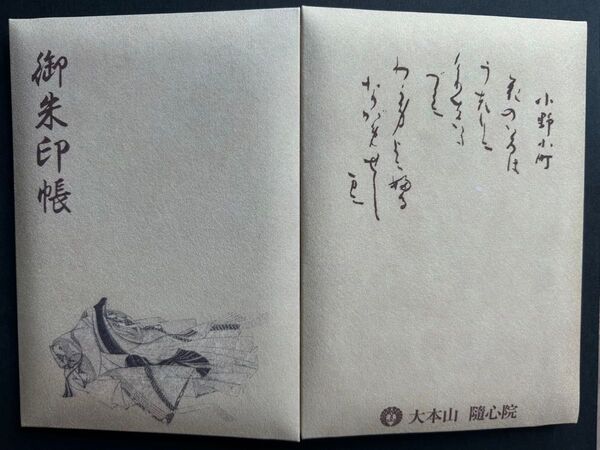 御朱印帳
小野小町
花のいろは
うつりに
けりないた
つらに
わか身よにふる
なかめせし
まに
大本山 隨心院